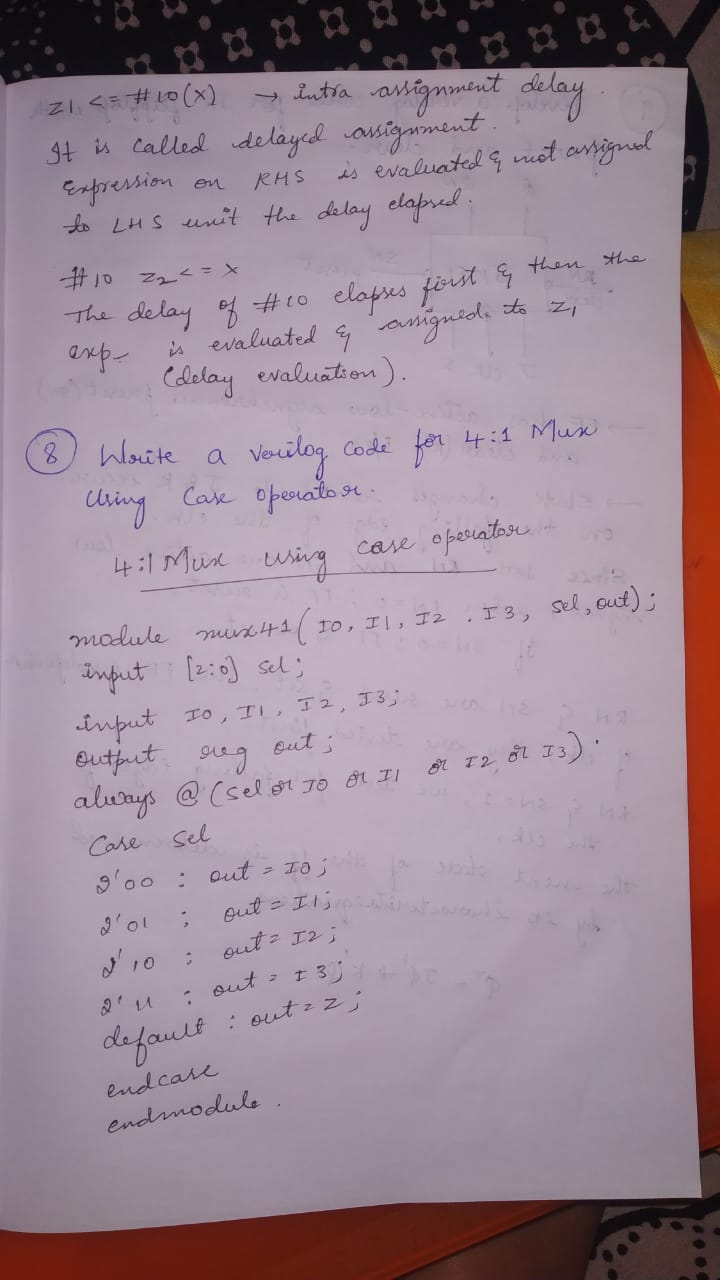 z1 <= #10(x) → intra assignment delay.
It is called delayed assignment.
Expression on RHS is evaluated & not assigned
to LHS unit the delay elapsed.
#10 z2 <= x
The delay of #10 elapses first & then the
exp- is evaluated & assigned to z1
(delay evaluation).
8 Write a verilog code for 4:1 Mux
Using Case operator.
4:1 Mux using case operator
module mux41(I0, I1, I2, I3, sel, out);
input [2:0] sel;
input I0, I1, I2, I3;
output reg out;
always @ (sel or I0 or I1 or I2 or I3)
Case sel
2'00 : out = I0;
2'01 : out = I1;
2'10 : out = I2;
2'11 : out = I3;
default : out = z;
endcase
endmodule.